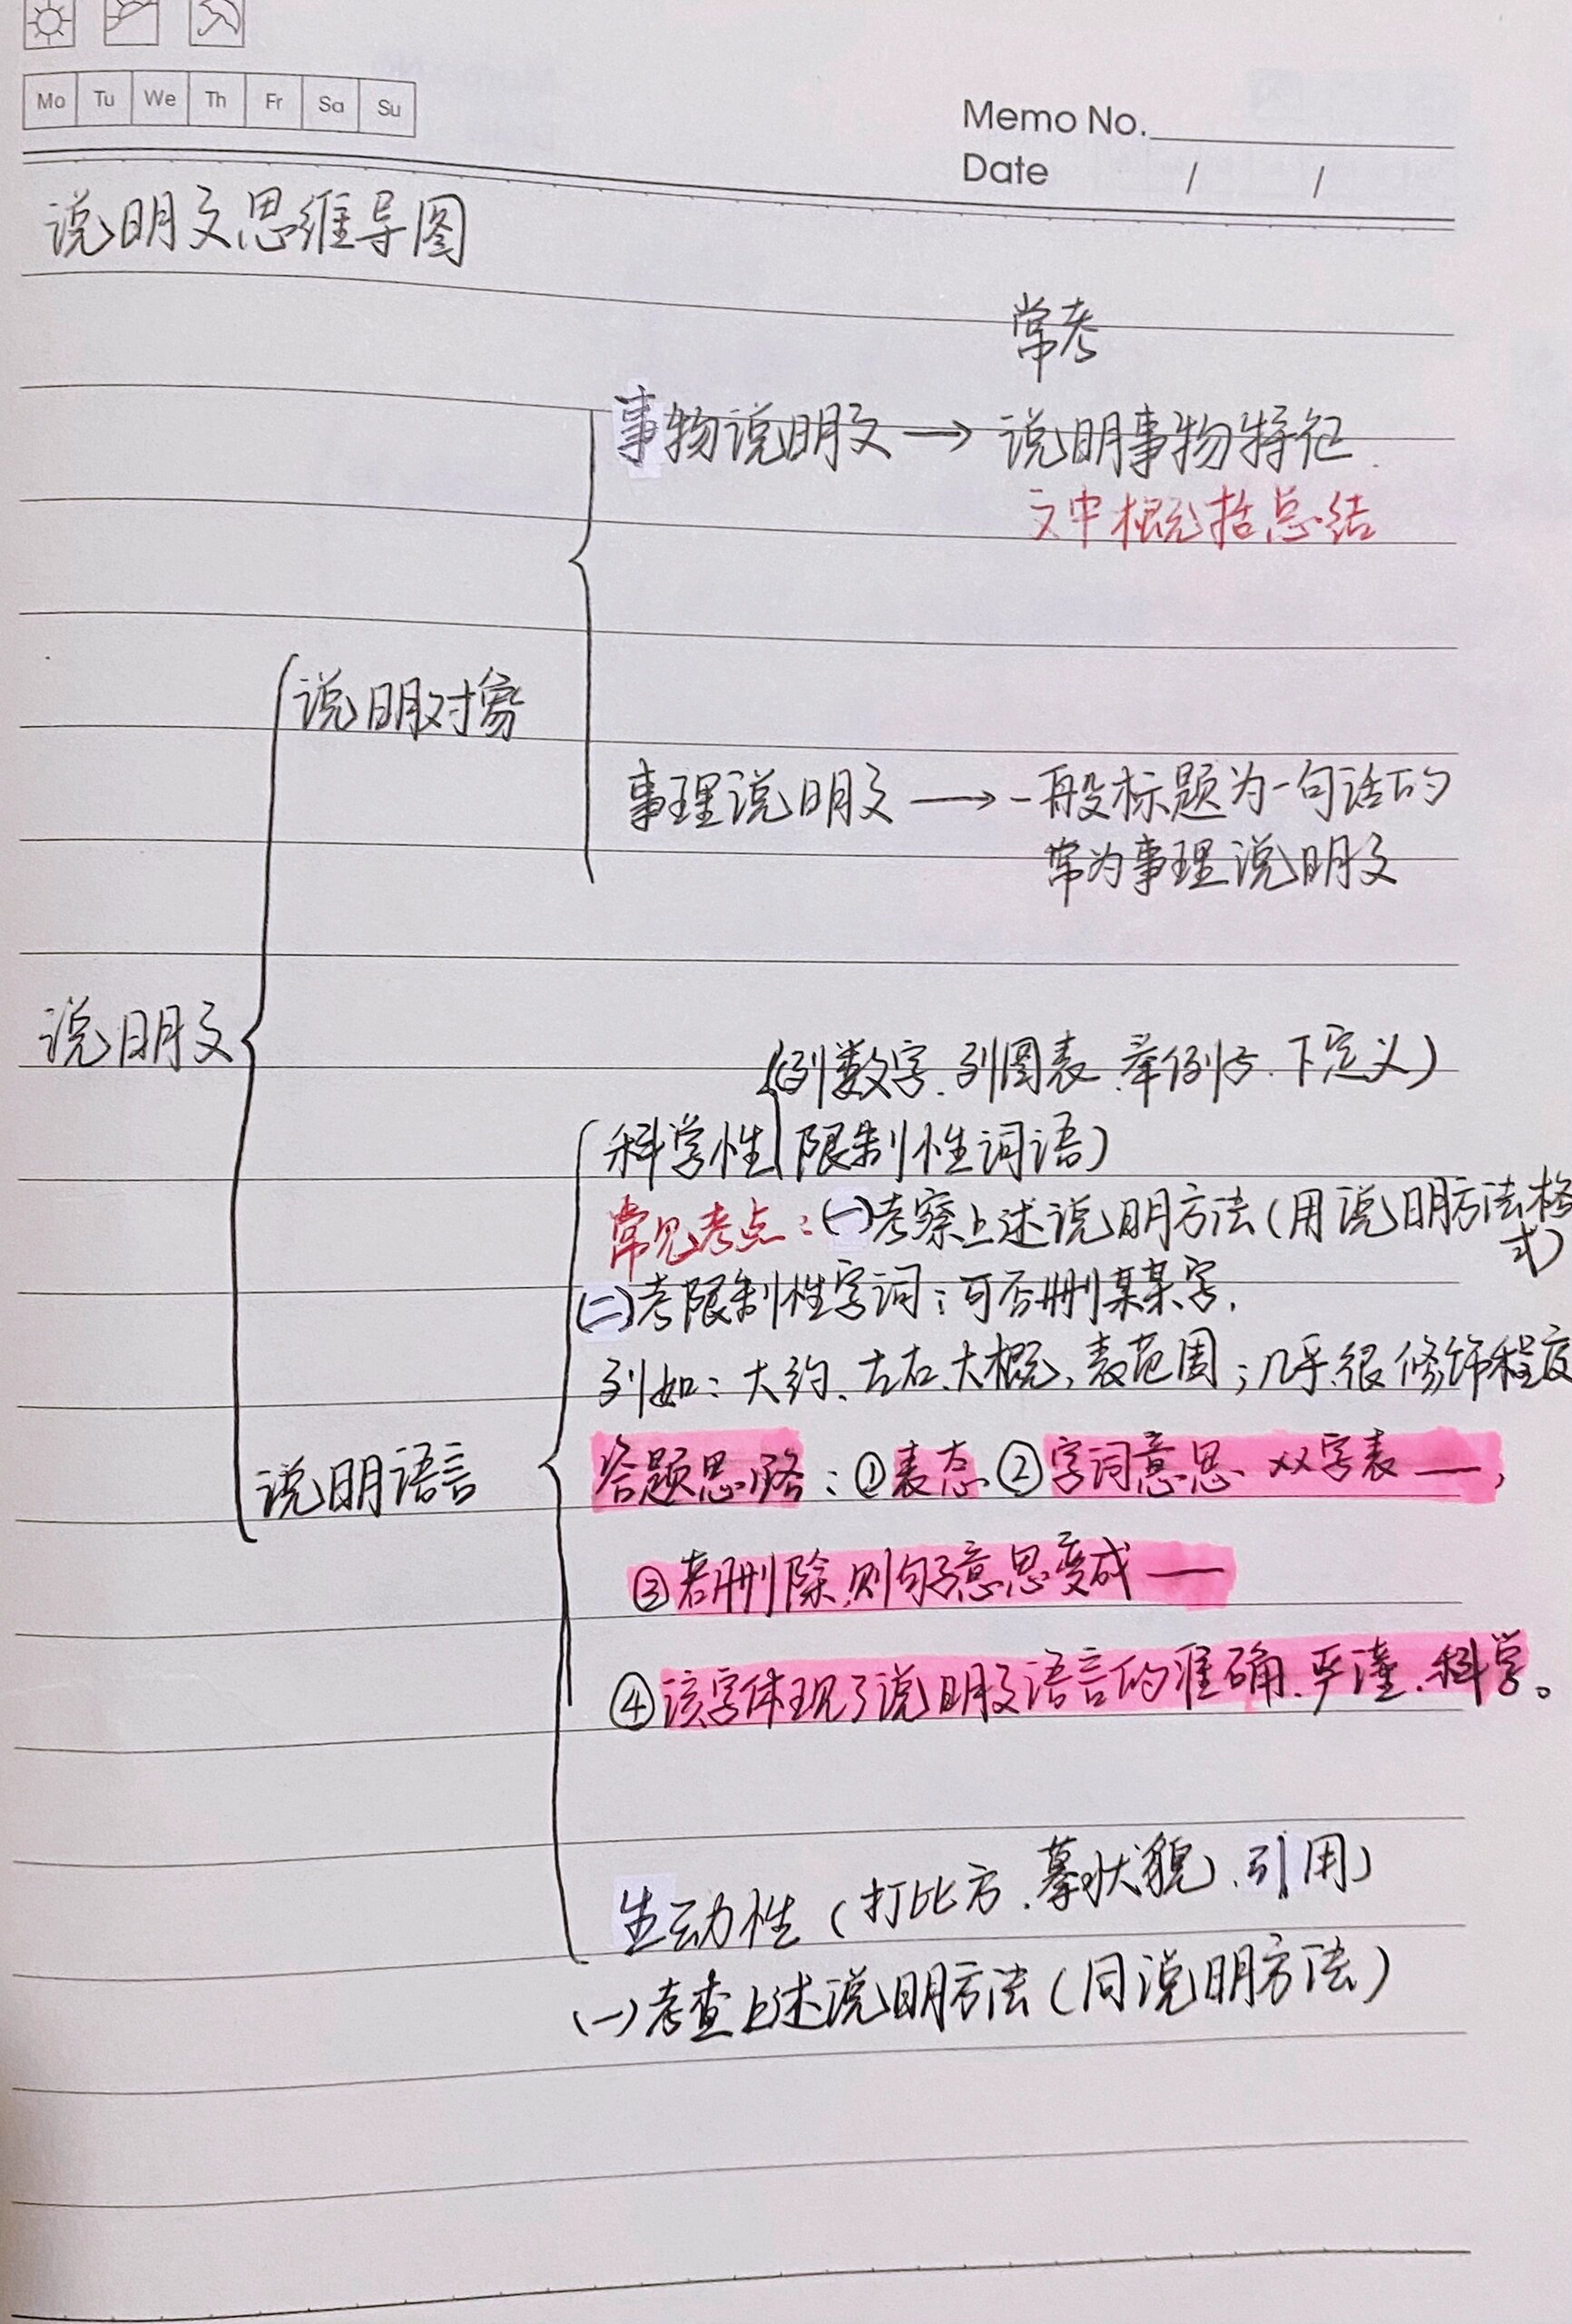 Mo Tu We Th Fr Sa Su
Memo No.
Date / /
说明文思维导图
常考
事物说明文→说明事物特征
文中概括总结
说明对象
事理说明文→一般标题为一句话的
常为事理说明文
说明文
(列数字、列图表、举例子、下定义)
科学性 限制性词语)
常见考点:(一)考察上述说明方法(用说明方法格
式)
(二)考限制性字词:可否删某某字,
列如:大约、左右、大概,表范围;几乎、很修饰程度
说明语言
答题思路:①表态②字词意思 xx字表——,
③若删除,则句子意思变成——
④该字体现了说明文语言的准确、严谨、科学。
生动性(打比方、摹状貌、引用)
(一)考查上述说明方法(同说明方法)